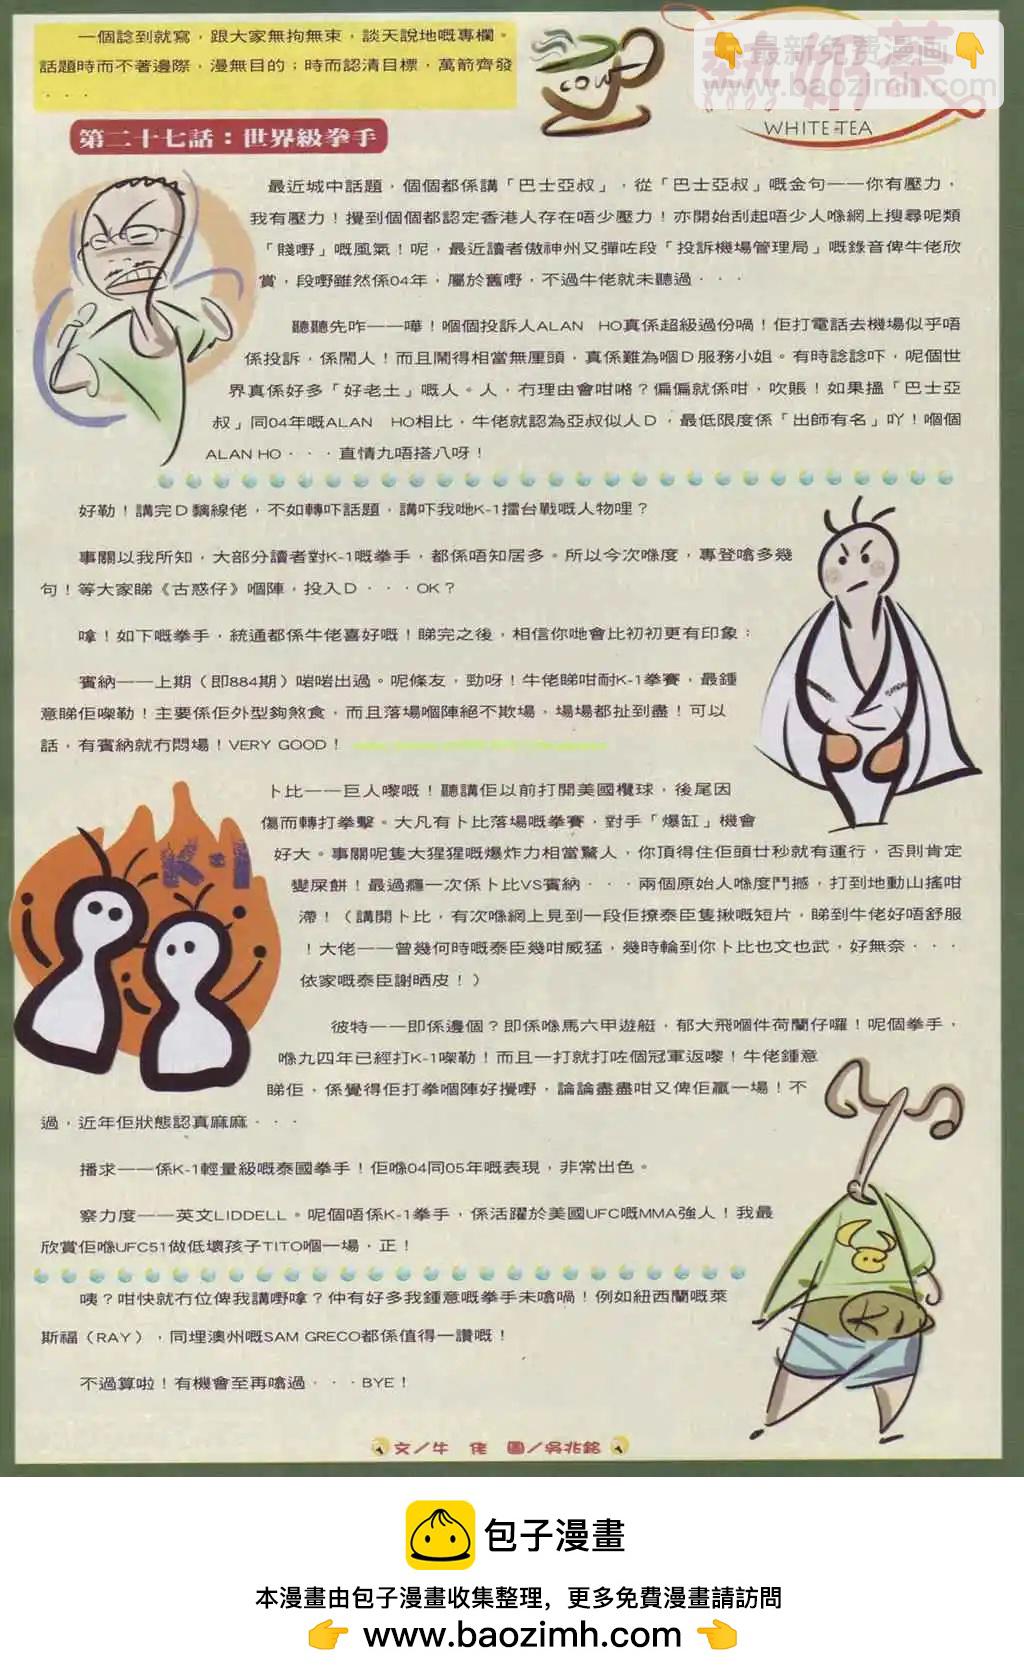 一個諗到就寫，跟大家無拘無束，談天說地嘅專欄。
話題時而不著邊際，漫無目的；時而認清目標，萬箭齊發
．．．
COW
熱奶茶
WHITE-TEA
👇最新免費漫画👇
www.baozimh.com
第二十七話：世界級拳手
最近城中話題，個個都係講「巴士亞叔」，從「巴士亞叔」嘅金句——你有壓力，
我有壓力！攪到個個都認定香港人存在唔少壓力！亦開始刮起唔少人喺網上搜尋呢類
「賤嘢」嘅風氣！呢，最近讀者傲神州又彈咗段「投訴機場管理局」嘅錄音俾牛佬欣
賞，段嘢雖然係04年，屬於舊嘢，不過牛佬就未聽過．．．
聽聽先咋——嘩！嗰個投訴人ALAN HO真係超級過份喎！佢打電話去機場似乎唔
係投訴，係鬧人！而且鬧得相當無厘頭，真係難為嗰D服務小姐。有時諗諗吓，呢個世
界真係好多「好老土」嘅人。人，冇理由會咁嘅？偏偏就係咁，吹脹！如果搵「巴士亞
叔」同04年嘅ALAN HO相比，牛佬就認為亞叔似人D，最低限度係「出師有名」吖！嗰個
ALAN HO．．．直情九唔搭八呀！
好勒！講完D黐線佬，不如轉吓話題，講吓我哋K-1擂台戰嘅人物哩？
事關以我所知，大部分讀者對K-1嘅拳手，都係唔知居多。所以今次喺度，專登噏多幾
句！等大家睇《古惑仔》嗰陣，投入D．．．OK？
嗱！如下嘅拳手，統通都係牛佬喜好嘅！睇完之後，相信你哋會比初初更有印象：
賓納——上期（即884期）啱啱出過。呢條友，勁呀！牛佬睇咁耐K-1拳賽，最鍾
意睇佢㗎勒！主要係佢外型夠煞食，而且落場嗰陣絕不欺場，場場都扯到盡！可以
話，有賓納就冇悶場！VERY GOOD！
卜比——巨人嚟嘅！聽講佢以前打開美國欖球，後尾因
傷而轉打拳擊。大凡有卜比落場嘅拳賽，對手「爆缸」機會
好大。事關呢隻大猩猩嘅爆炸力相當驚人，你頂得住佢頭廿秒就有運行，否則肯定
變屎餅！最過癮一次係卜比VS賓納．．．兩個原始人喺度鬥撼，打到地動山搖咁
滯！（講開卜比，有次喺網上見到一段佢撩泰臣隻揪嘅短片，睇到牛佬好唔舒服
！大佬——曾幾何時嘅泰臣幾咁威猛，幾時輪到你卜比也文也武，好無奈．．．
依家嘅泰臣謝晒皮！）
彼特——即係邊個？即係喺馬六甲遊艇，郁大飛嗰件荷蘭仔囉！呢個拳手，
喺九四年已經打K-1㗎勒！而且一打就打咗個冠軍返嚟！牛佬鍾意
睇佢，係覺得佢打拳嗰陣好攪嘢，論論盡盡咁又俾佢贏一場！不
過，近年佢狀態認真麻麻．．．
播求——係K-1輕量級嘅泰國拳手！佢喺04同05年嘅表現，非常出色。
察力度——英文LIDDELL。呢個唔係K-1拳手，係活躍於美國UFC嘅MMA強人！我最
欣賞佢喺UFC51做低壞孩子TITO嗰一場，正！
咦？咁快就冇位俾我講嘢嗱？仲有好多我鍾意嘅拳手未噏喎！例如紐西蘭嘅萊
斯福（RAY），同埋澳州嘅SAM GRECO都係值得一讚嘅！
不過算啦！有機會至再噏過．．．BYE！
文／牛 佬 圖／吳兆銘
包子漫畫
本漫畫由包子漫畫收集整理，更多免費漫畫請訪問
👉 www.baozimh.com 👈